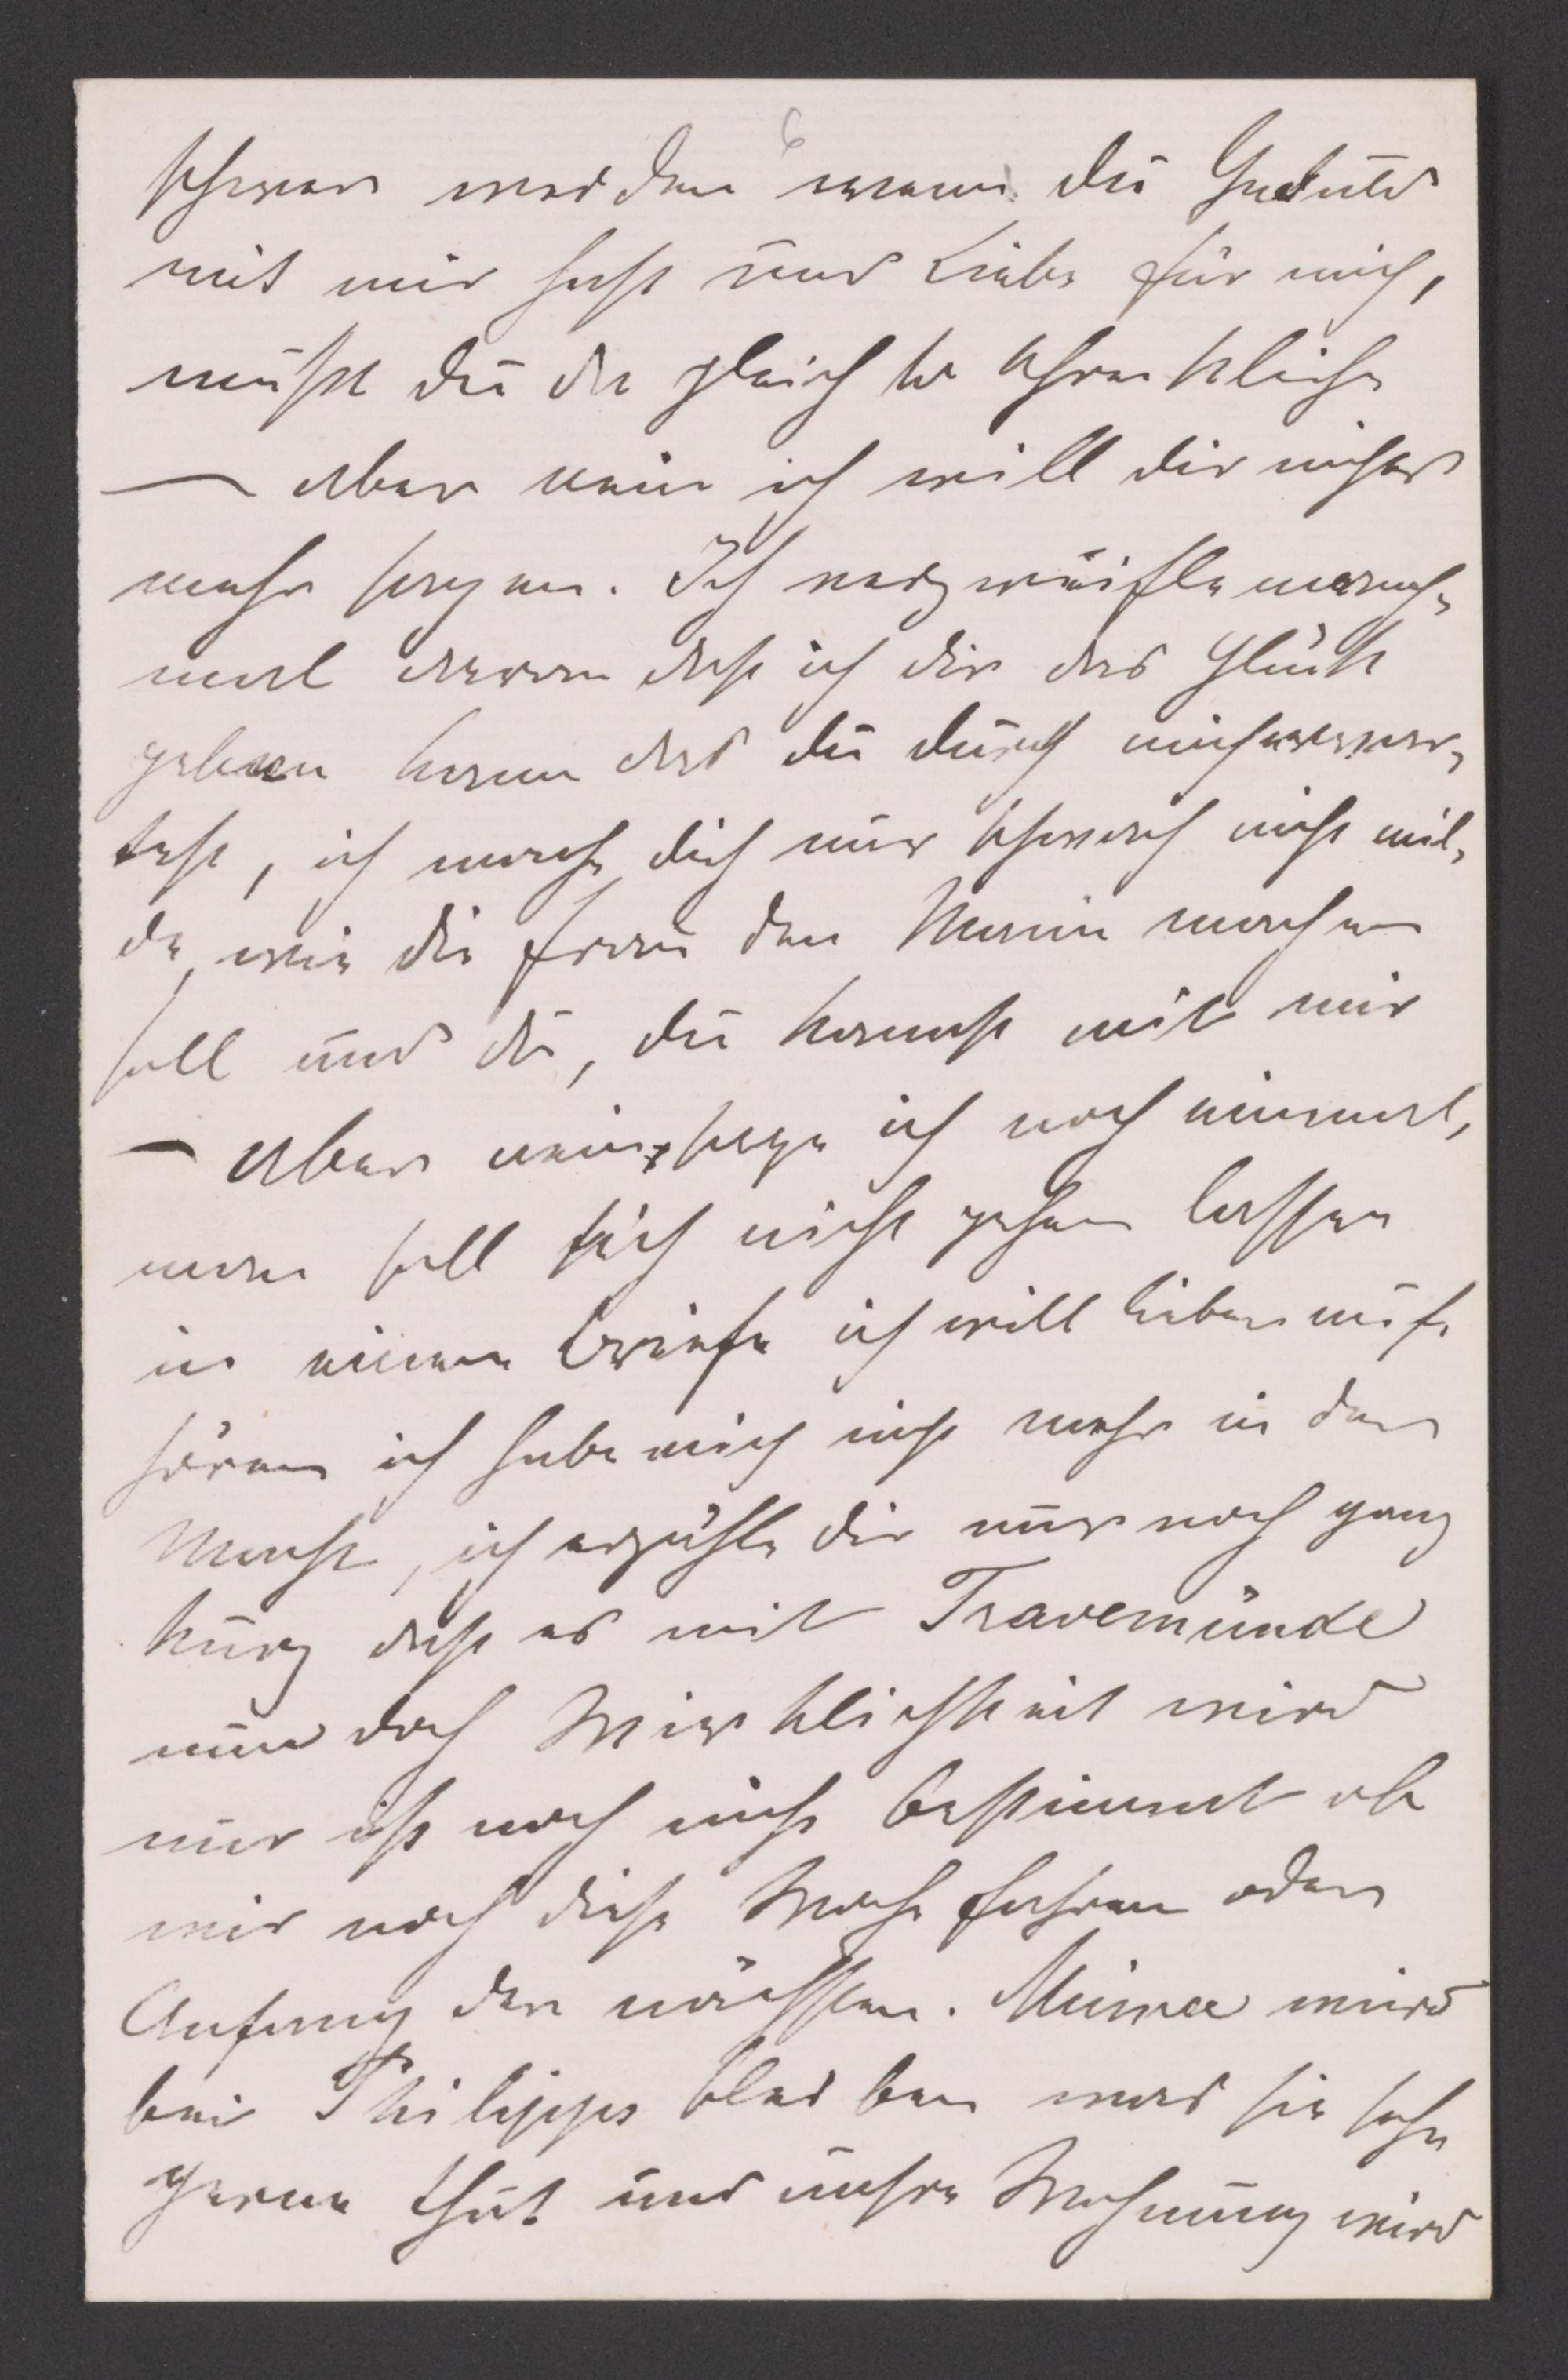 6
schwer werden wenn du Geduld
mit mir hast und Liebe für mich,
mußt du da gleich so schreckliche
— aber nein ich will dir nichts
mehr sagen. Ich verzweifle manch-
mal daran daß ich dir das Glück
geben kann das du durch mich erwar-
test, ich mache dich nur schwach nicht mil-
de, wie die Frau den Mann machen
soll und du, du kannst mit mir
— aber nein, sage ich noch einmal,
man soll sich nicht gehen lassen
in einem Briefe ich will lieber auf-
hören ich habe mich nicht mehr in der
Macht, ich erzähle dir nur noch ganz
kurz daß es mit Travemünde
nun doch Wirklichkeit wird
nur ist noch nicht bestimmt ob
wir noch diese Woche fahren oder
Anfang der nächsten. Minna wird
bei Philipps bleiben was sie sehr
gerne thut und unsre Wohnung wird